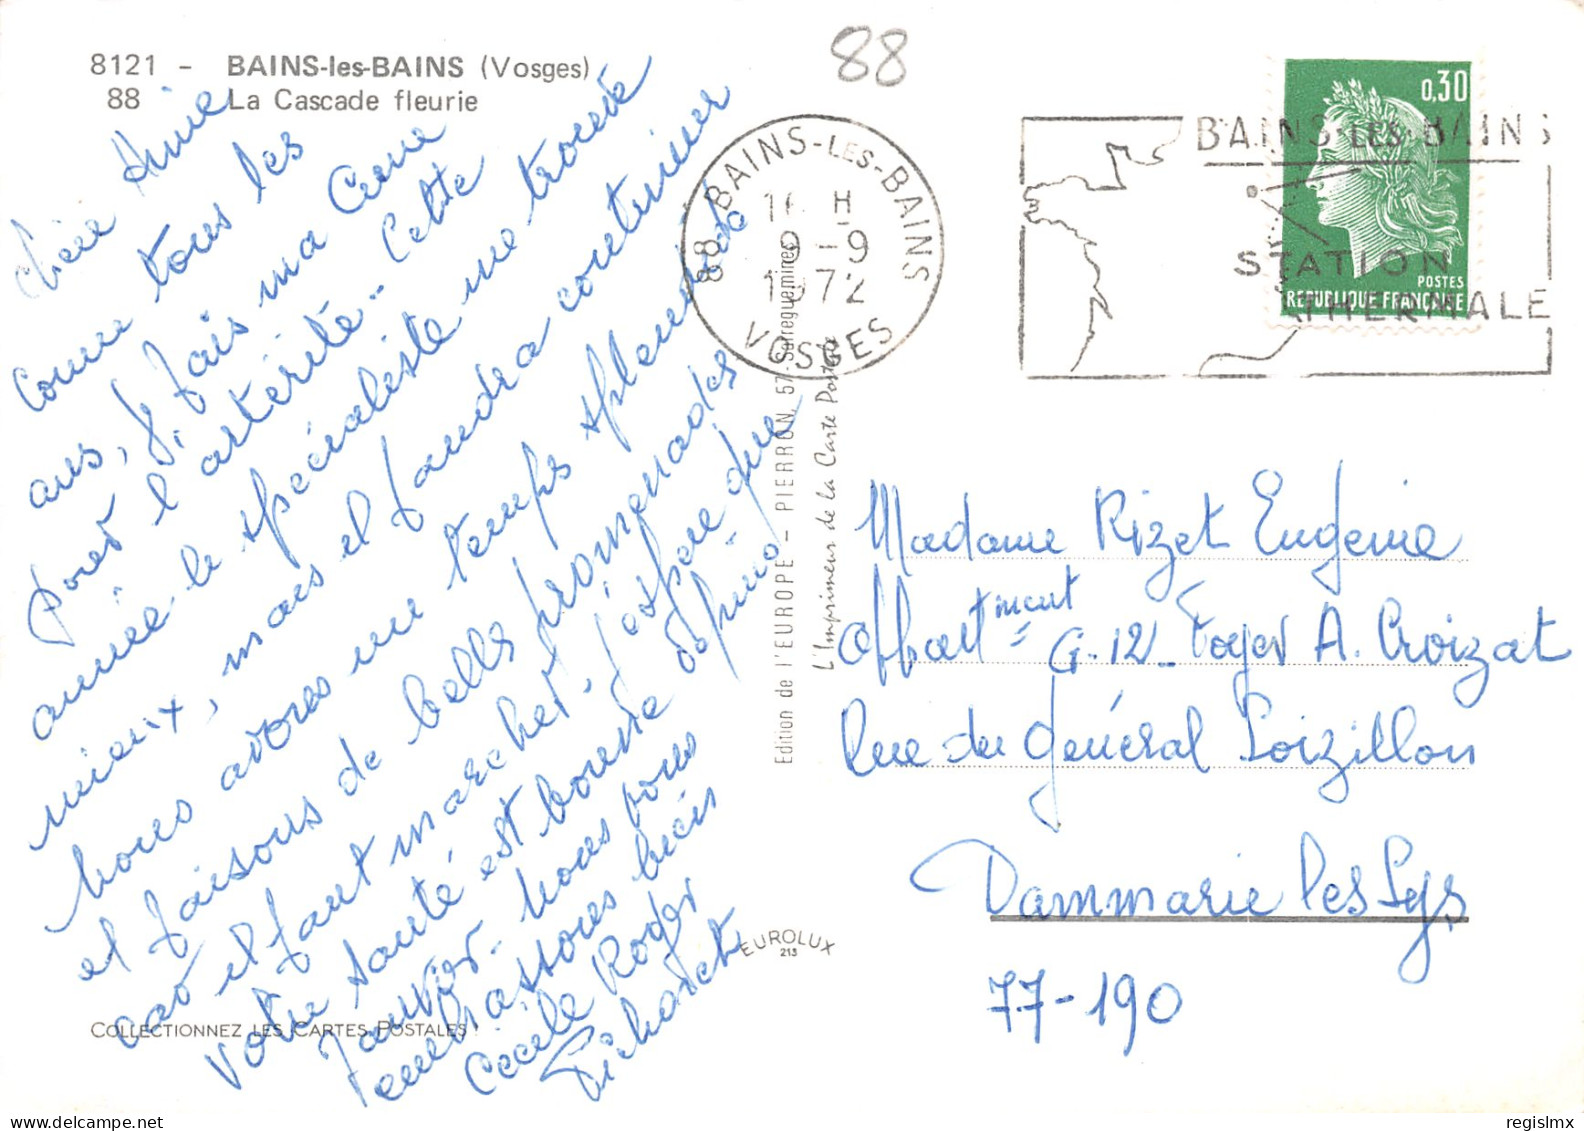 8121 - BAINS-les-BAINS (Vosges)
88 La Cascade fleurie
88
Chère Amie
Comme tous les
ans, je fais ma Cure
pour l'artérite - Cette
année le spécialiste me trouve
mieux, mais il faudra continuer
nous avons un temps splendide
et faisons de belles promenades
car il faut marcher - J'espère que
votre santé est bonne
nous vous
embrassons bien
Cécile Roger
88 BAINS-LES-BAINS
H
9-9
1972
VOSGES
BAINS-LES-BAINS
STATION
THERMALE
0,30
POSTES
REPUBLIQUE FRANÇAISE
Edition de l'EUROPE - PIERRON, 57 - Sarreguemines
L'Imprimeur de la Carte Postale
Madame Rizet Eugenie
Appartement G-12 - Foyer A. Croizat
Rue du Général Loizillon
Dammarie les Lys
77-190
EUROLUX
213
COLLECTIONNEZ LES CARTES POSTALES
regislmx